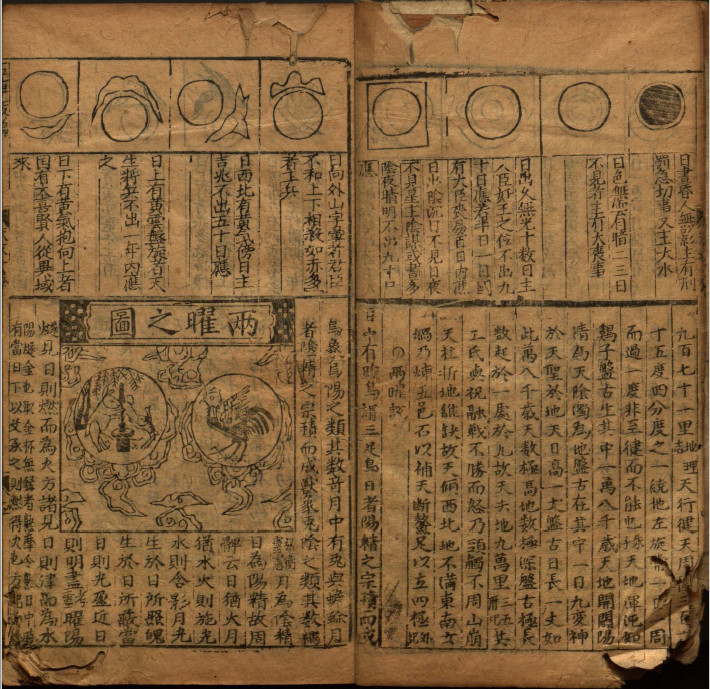 日書昏人無影主有刑
罰急切書天主大水
日色無光有暗二三日
不見者主有大喪事
日出久無光十數日主
人臣奸主之位不出九
十日應若半日一日國
有大臣喪百日内應
日出陰沉日不見日夜
不見星主陰謀或書多
陰夜晴明不出九十日
應
九百七十一里地理天行健天周
十五度四分度之一統地左旋一周
而過一度非至健而不能也天地渾沌如
鷄子盤古生其中一萬八千歲天地開闢陽
清為天陰濁為地盤古在其中一日九變神
於天聖於地天日高一丈盤古日長一丈如
此萬八千歲天數極高地數極深盤古極長
數起於一於九故天去地九萬里
工氏與祝融戰不勝而怒乃頭觸不周山崩
天柱折地維缺故天傾西北地不滿東南女
媧乃煉五色石以補天斷鰲足以立四極
兩曜說
日中有踆烏謂三足烏日者陽精之宗積而成
日向外山字暈者君臣
不和上下相殺如赤多
者主兵
日西北有黃氣傍日主
吉兆不出五十日應
日上有黃雲盤旋者天
生將星不出一年内應
之
日下有黃氣抱向上者
國有圣賢人從異域
來
兩曜之圖
烏象烏陽之類其數奇月中有兔與蟾蜍月
者陰精之宗積而成獸象兔陰之類其數耦
月為陰精
日為陽精故周
髀云日猶火月
猶水火則施光
水則含影月光
生於日所照魄
生於日所蔽當
日則光盈近日
則明盡曜陽
燧見日則燃而為火方諸見月則津而為水
陽燧金也取金杯無緣者熟摩令熱日中時
有當日下以艾承之則燃得火也方諸